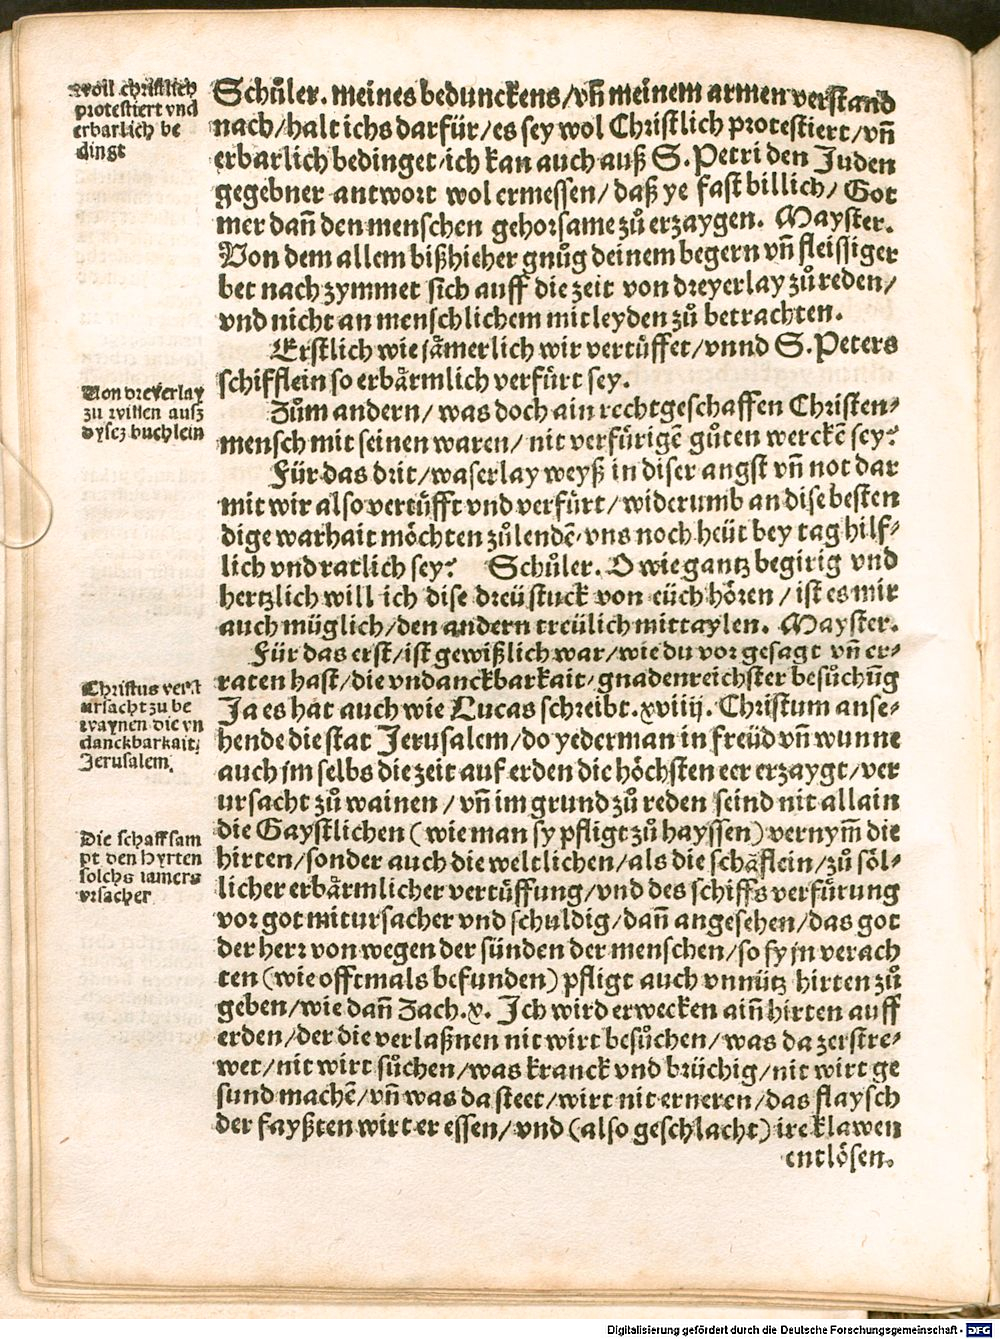 Woil christlich
protestiert vnd
erbarlich be
dingt
Schůler. meines bedunckens/vñ meinem armen verstand
nach/halt ichs darfür/es sey wol Christlich protestiert/vñ
erbarlich bedinget/ich kan auch auß S. Petri den Juden
gegebner antwort wol ermessen/daß ye fast billich/Got
mer dañ den menschen gehorsame zů erzaygen. Mayster.
Von dem allem bißhieher gnůg deinem begern vñ fleissiger
bet nach zymmet sich auff die zeit von dreyerlay zů reden/
vnd nicht an menschlichem mitleyden zů betrachten.
Erstlich wie jämerlich wir vertüffet/vnnd S. Peters
schifflein so erbärmlich verfürt sey.
Von dreyerlay
zu wissen ausz
dysez buchlein
Zům andern/was doch ain rechtgeschaffen Christen⸗
mensch mit seinen waren/nit verfürigẽ gůten werckẽ sey?
Für das drit/waserlay weyß in diser angst vñ not dar
mit wir also vertüfft vnd verfürt/widerumb an dise besten
dige warhait möchten zůlendẽ/vns noch heüt bey tag hilf⸗
lich vnd ratlich sey? Schůler. O wie gantz begirig vnd
hertzlich will ich dise dreü stuck von eüch hören/ist es mir
auch müglich/den andern treülich mittaylen. Mayster.
Für das erst/ist gewißlich war/wie du vor gesagt vñ er⸗
raten hast/die vndanckbarkait/gnadenreichster besůchũg
Christus verst
ursacht zu be
waynen die vn
danckbarkait/
Jerusalem.
Ja es hat auch wie Lucas schreibt.xviiij. Christum anse⸗
hende die stat Jerusalem/do yederman in freüd vñ wunne
auch jm selbs die zeit auf erden die höchsten eer erzaygt/ver
ursacht zů wainen/vñ im grund zů reden seind nit allain
die Gaystlichen (wie man sy pfligt zů hayssen) vernym̃ die
hirten/sonder auch die weltlichen/als die schäflein/zů söl⸗
Die schaff sam
pt den hyrten
solchs iamers
vrsacher
licher erbärmlicher vertüffung/vnd des schiffs verfürung
vor got mitursacher vnd schuldig/dañ angesehen/das got
der herr von wegen der sünden der menschen/so sy jn verach
ten (wie offtmals befunden) pfligt auch vnnütz hirten zů
geben/wie dañ Zach.x. Ich wird erwecken aiñ hirten auff
erden/der die verlaßnen nit wirt besůchen/was da zerstre⸗
wet/nit wirt sůchen/was kranck vnd brüchig/nit wirt ge
sund machẽ/vñ was da steet/wirt nit erneren/das flaysch
der fayßten wirt er essen/vnd (also geschlacht) ire klawen
entlösen.
Digitalisierung gefördert durch die Deutsche Forschungsgemeinschaft - DFG